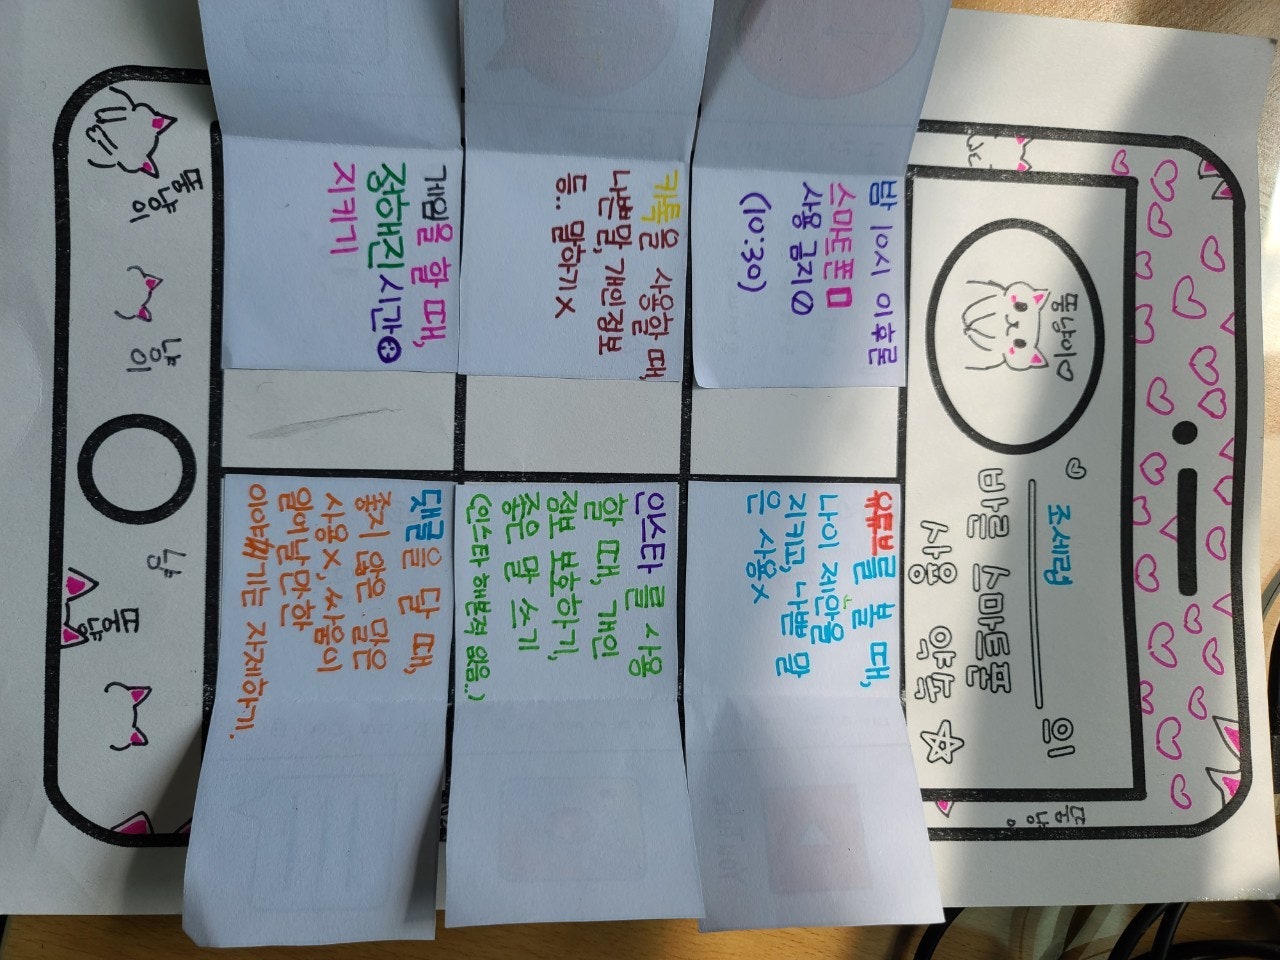 뚱냥이♡
조세령 의
바른 스마트폰
사용 약속
밤 10시 이후론
스마트폰
사용 금지
(10:30)
유튜브를 볼 때,
나이 제한을
지키고, 나쁜 말
은 사용x
카톡을 사용할 때,
나쁜말, 개인정보
등.. 말하기x
인스타를 사용
할 때, 개인
정보 보호하기,
좋은 말 쓰기
(인스타 해본적 없음..)
게임을 할 때,
정해진 시간
지키기
댓글을 달 때,
좋지 않은 말은
사용x, 싸움이
일어날만 한
이야기는 자제하기.
뚱냥이
냥이
냥
뚱냥